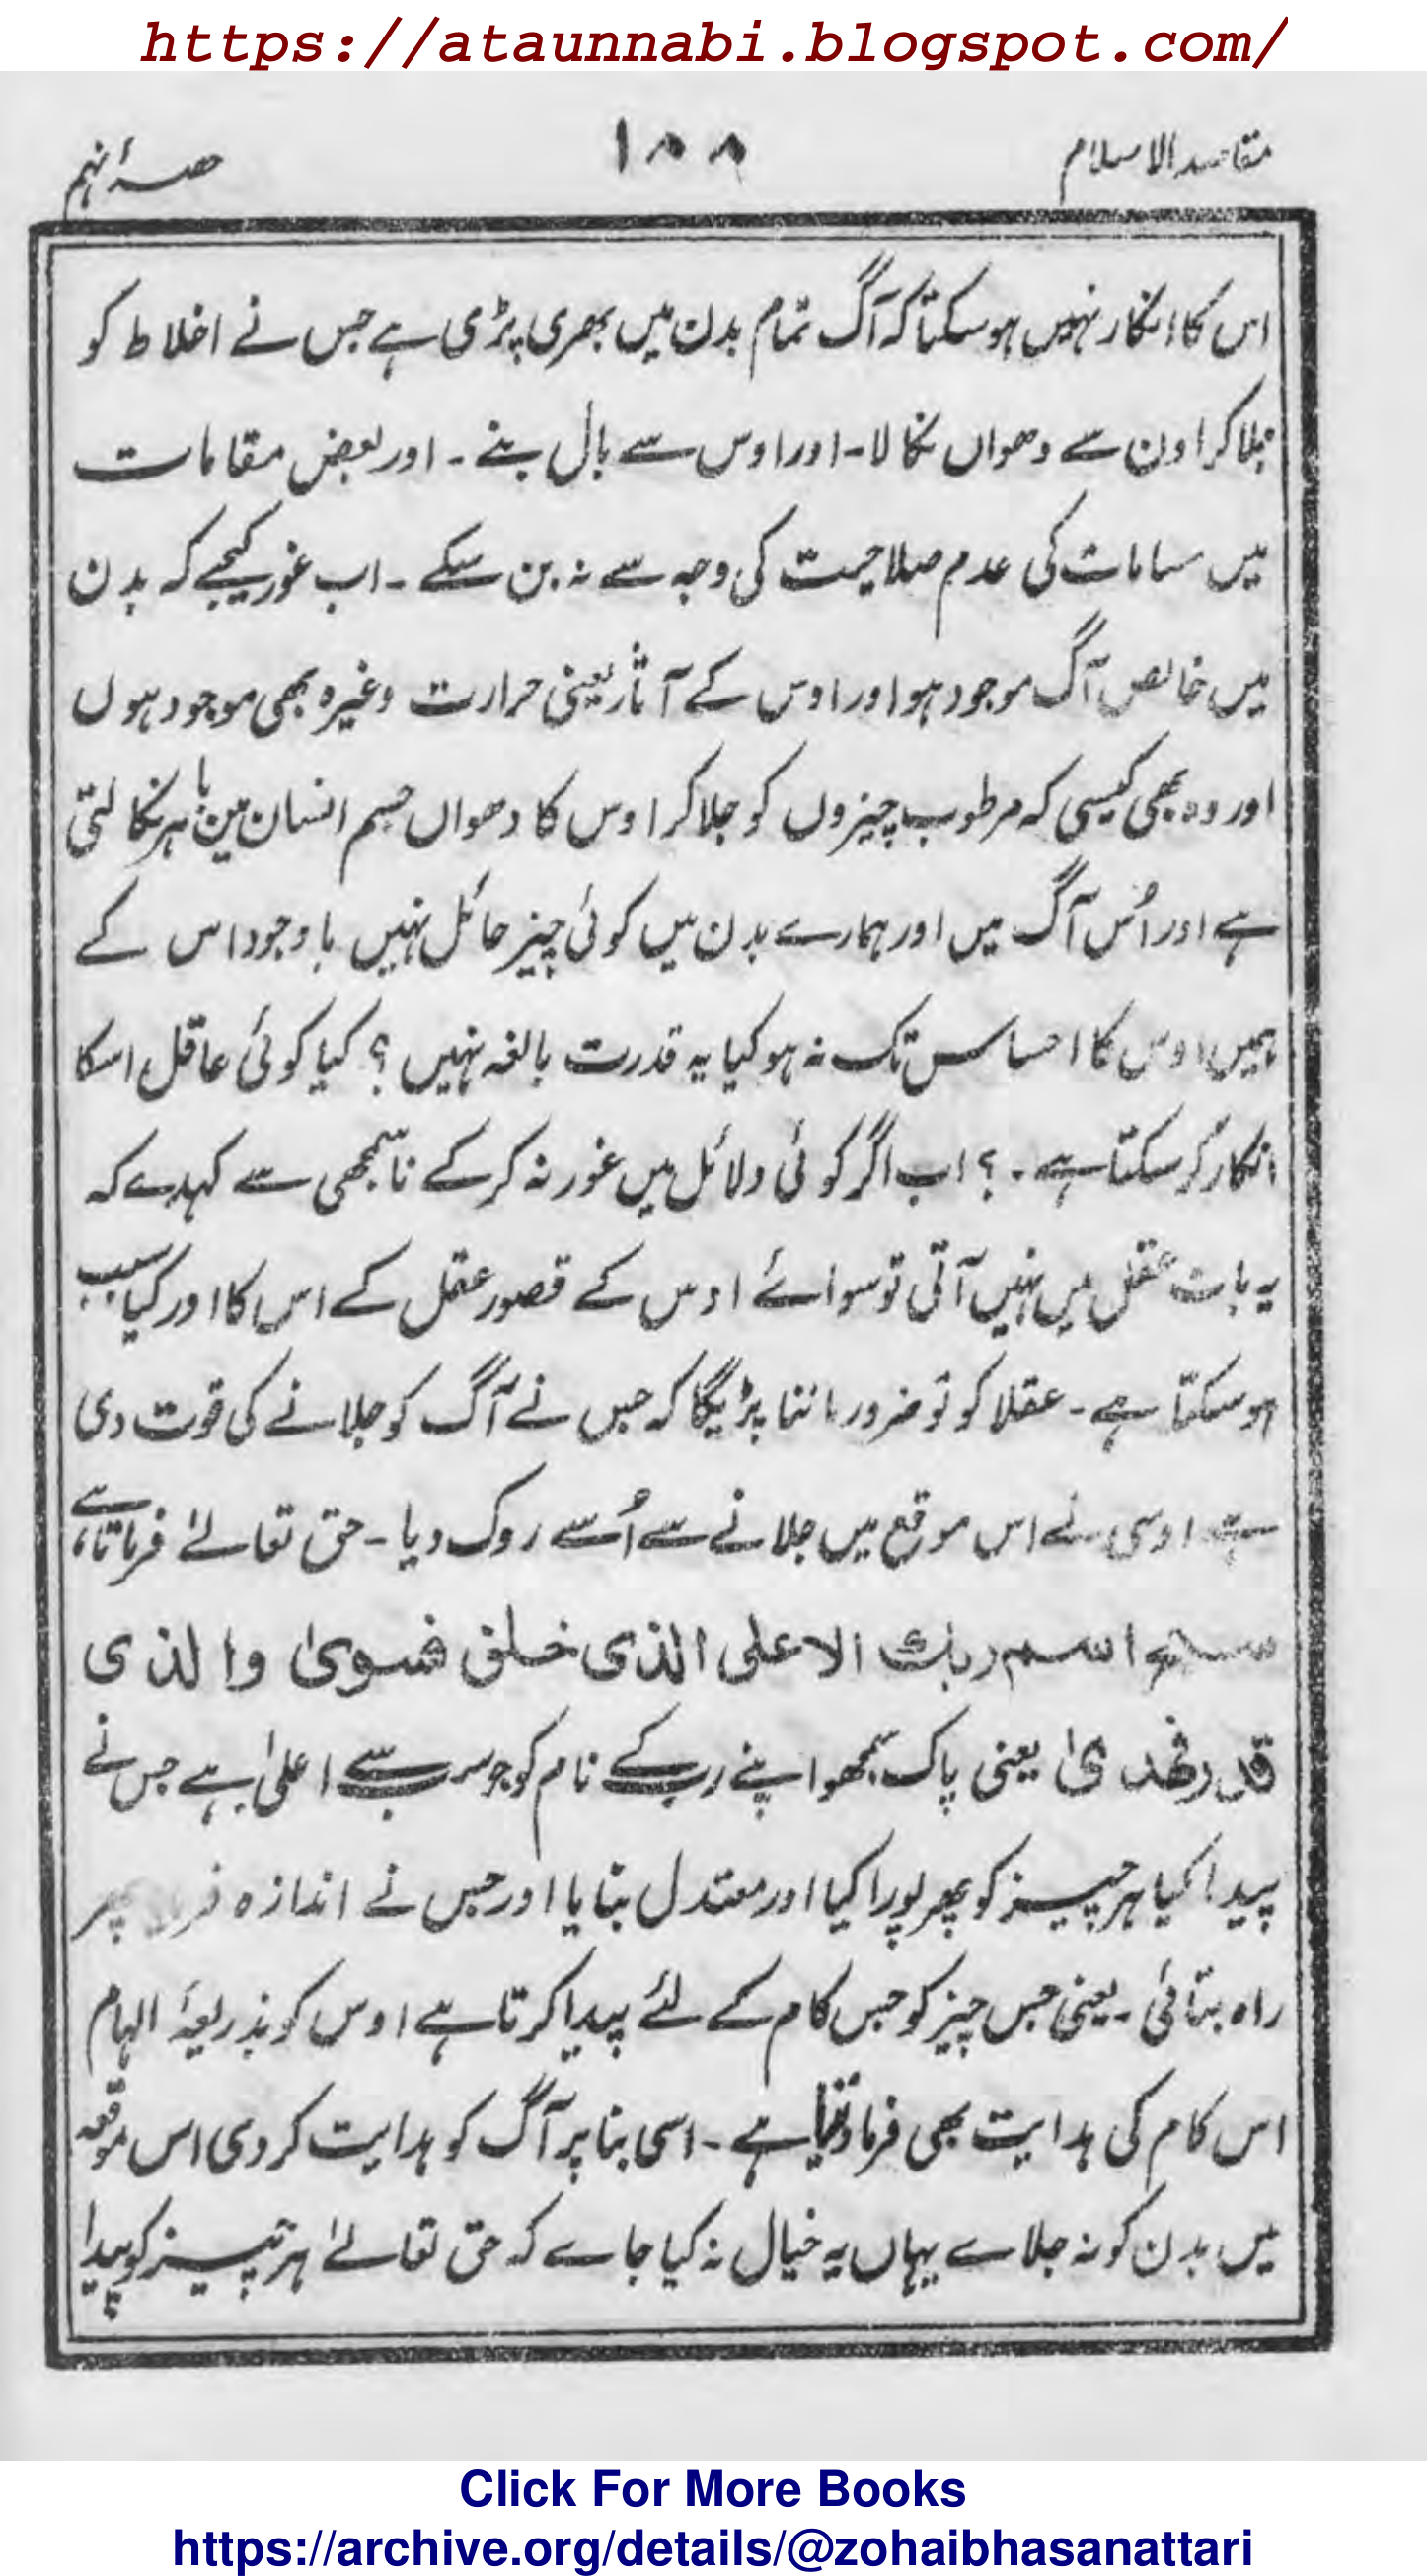 https://ataunnabi.blogspot.com/
مقاصد الاسلام ۱۸۸ حصۂ نہم
اس کا انکار نہیں ہوسکتا کہ آگ تمام بدن میں بھری پڑی ہے جس نے اخلاط کو
جلا کر اون سے دھواں نکالا۔ اور اوس سے بال بنے۔ اور بعض مقامات
میں مسامات کی عدم صلاحیت کی وجہ سے نہ بن سکے۔ اب غور کیجیے کہ بدن
میں خالص آگ موجود ہو اور اوس کے آثار یعنی حرارت وغیرہ بھی موجود ہوں
اور وہ بھی کیسی کہ مرطوب چیزوں کو جلا کر اوس کا دھواں جسم انسان میں باہر نکالتی
ہے اور اُس آگ میں اور ہمارے بدن میں کوئی چیز حائل نہیں باوجود اس کے
ہمیں اوس کا احساس تک نہ ہو کیا یہ قدرت بالغہ نہیں ؟ کیا کوئی عاقل اسکا
انکار کرسکتا ہے ۔ ؟ اب اگر کوئی دلائل میں غور نہ کرکے ناسمجھی سے کہدے کہ
یہ بات عقل میں نہیں آتی تو سوائے اوس کے قصور عقل کے اس کا اور کیا سبب
ہوسکتا ہے ۔ عقلا کو تو ضرور ماننا پڑیگا کہ جس نے آگ کو جلانے کی قوت دی
ہے اوسی نے اس موقع میں جلانے سے اُسے روک دیا ۔ حق تعالےٰ فرماتا ہے
سبح اسم ربك الاعلى الذی خلق فسوىٰ والذی
قدر فهدىٰ یعنی پاک سمجھو اپنے رب کے نام کو جو سب سے اعلیٰ ہے جس نے
پیدا کیا ہر چیز کو پھر پورا کیا اور معتدل بنایا اور جس نے اندازہ پھر
راہ بتائی ۔ یعنی جس چیز کو جس کام کے لئے پیدا کرتا ہے اوس کو بذریعۂ الہام
اس کام کی ہدایت بھی فرما دیتا ہے ۔ اسی بنا پر آگ کو ہدایت کردی اس موقعہ
میں بدن کو نہ جلاے یہاں یہ خیال نہ کیا جاے کہ حق تعالےٰ ہر چیز کو پیدا
Click For More Books
https://archive.org/details/@zohaibhasanattari